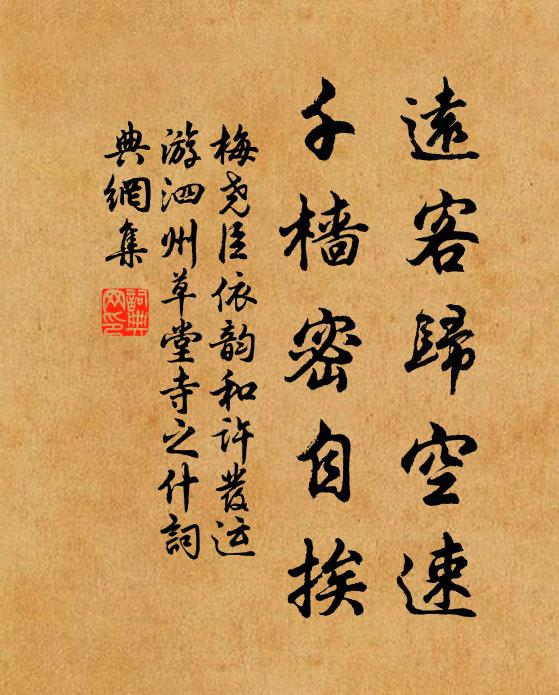 遠客歸空速
千檣密自挨
梅尧臣依韵和许發运
游泗州草堂寺之什詞
典網集
詞典
网印